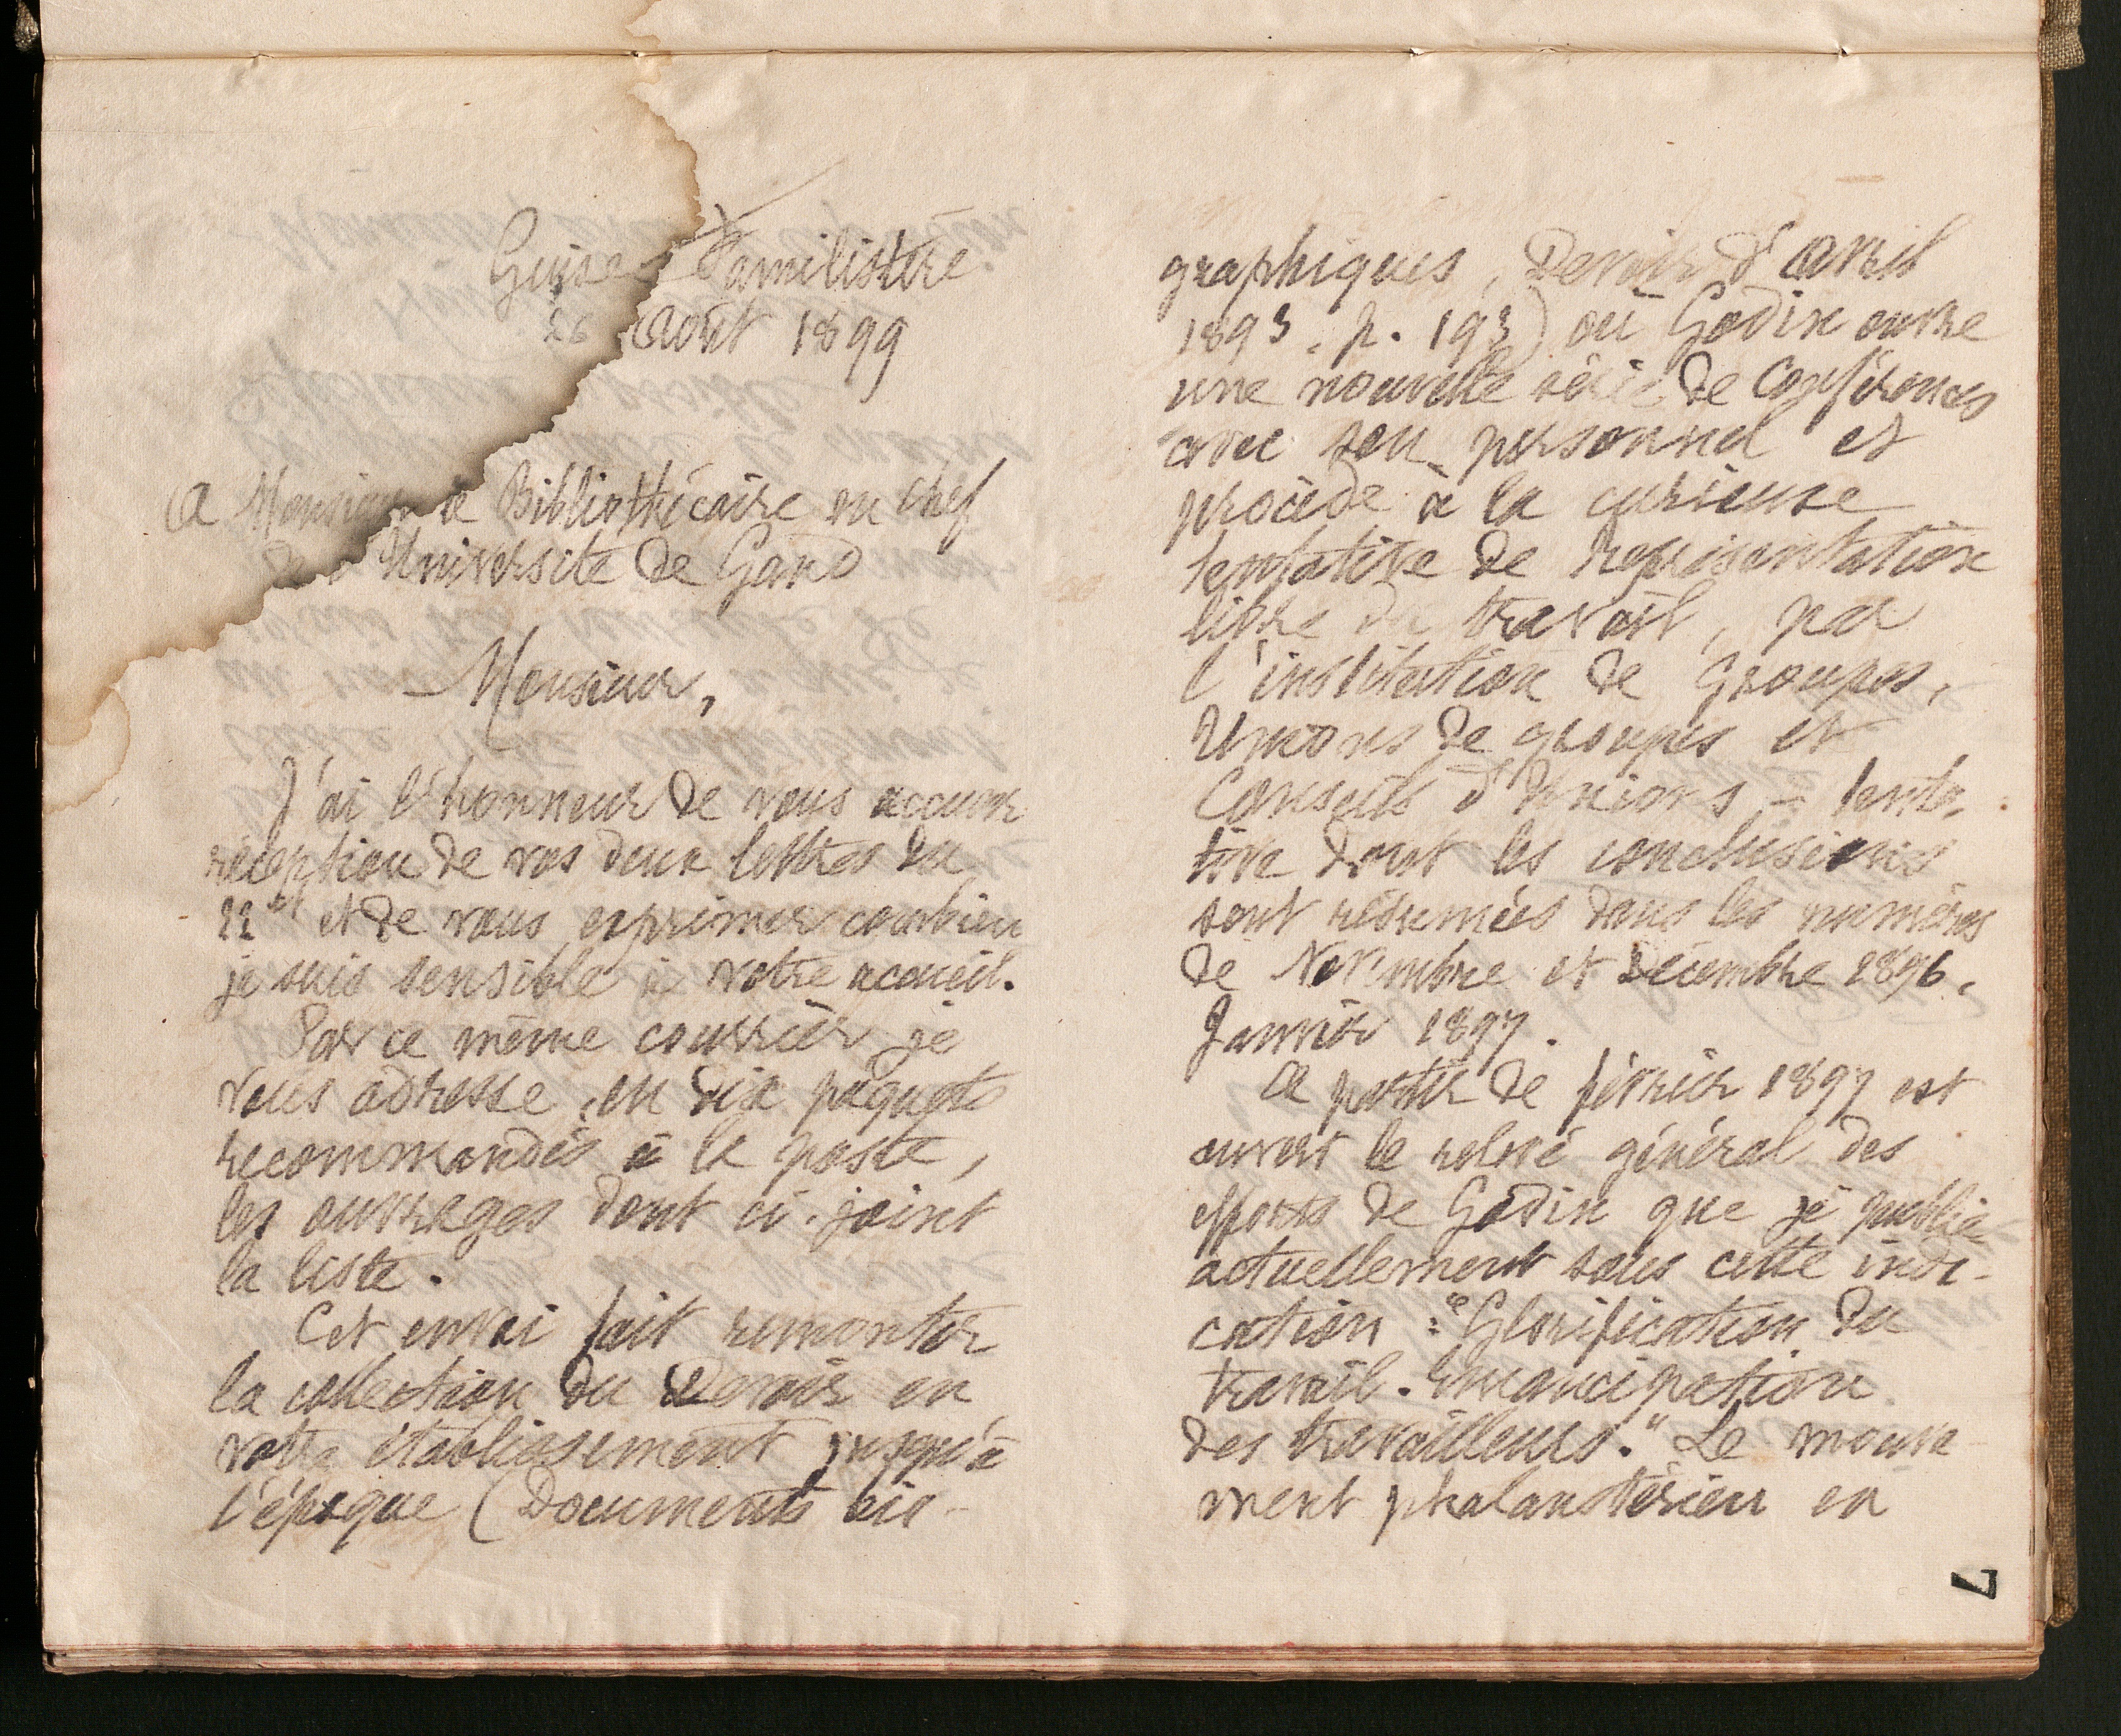 Guise Familistère
26 Août 1899
A Monsieur le Bibliothécaire en chef
de l'Université de Gand
Monsieur,
J'ai l'honneur de vous accuser
réception de vos deux lettres du
22 et de vous exprimer combien
je suis sensible à votre accueil.
Par ce même courrier je
vous adresse, en dix paquets
recommandés à la poste,
les ouvrages dont ci-joint
la liste.
Cet envoi fait remonter
la collection du Devoir en
votre établissement jusqu'à
l'époque (Documents bio-
graphiques, Devoir d'avril
1893, p. 193) où Godin ouvre
une nouvelle série de Conférences
avec son personnel et
procède à la curieuse
tentative de représentation
libre du travail, par
l'institution de Groupes,
Unions de groupes et
Conseils d'Unions - tenta-
tive dont les conclusions
sont résumées dans les numéros
de Novembre et Décembre 1896,
Janvier 1897.
A partir de février 1897 est
ouvert le relevé général des
efforts de Godin que je publie
actuellement sous cette indi-
cation : "Glorification du
travail. Emancipation
des travailleurs." Le mouve
ment phalanstérien en
7